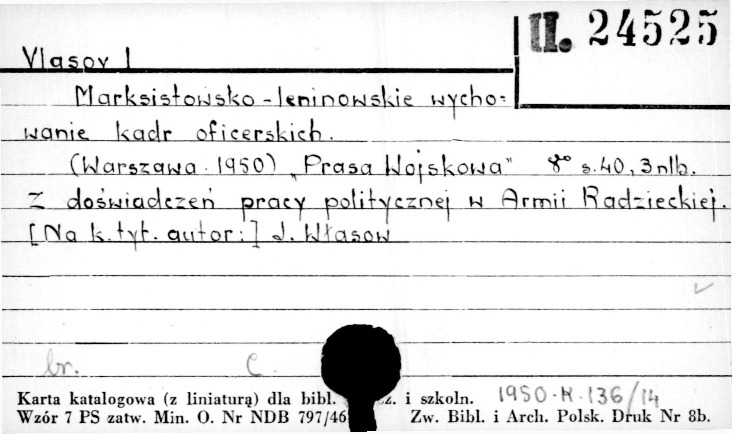 II. 24525
Vlasov I
Marksistowsko-leninowskie wycho=
wanie kadr oficerskich.
(Warszawa 1950) „Prasa Wojskowa" 8° s. 40, 3 nlb.
Z doświadczeń pracy politycznej w Armii Radzieckiej.
[Na k. tyt. autor:] J. Własow
br. C.
Karta katalogowa (z liniaturą) dla bibl. i szkoln. 1950.K.136/14
Wzór 7 PS zatw. Min. O. Nr NDB 797/46 Zw. Bibl. i Arch. Polsk. Druk Nr 8b.